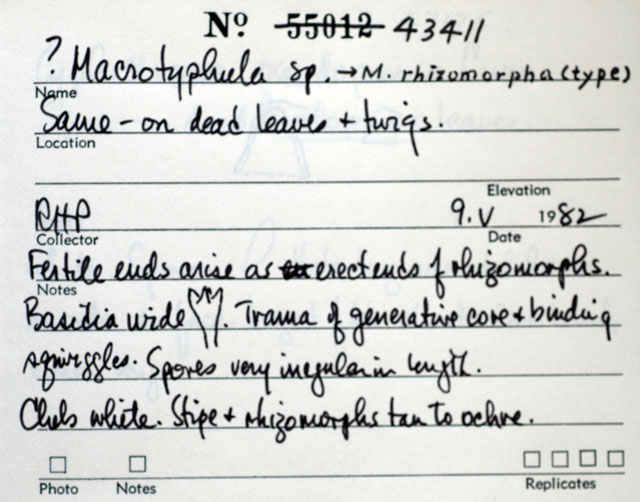 Nº 55012 43411
? Macrotyphula sp. → M. rhizomorpha (type)
Name
Same - on dead leaves + twigs.
Location
Elevation
RHP 9. V 1982
Collector Date
Fertile ends arise as erect ends of rhizomorphs.
Notes
Basidia wide. Trama of generative core + binding
squiggles. Spores very irregular in length.
Clubs white. Stipe + rhizomorphs tan to ochre.
Photo Notes Replicates